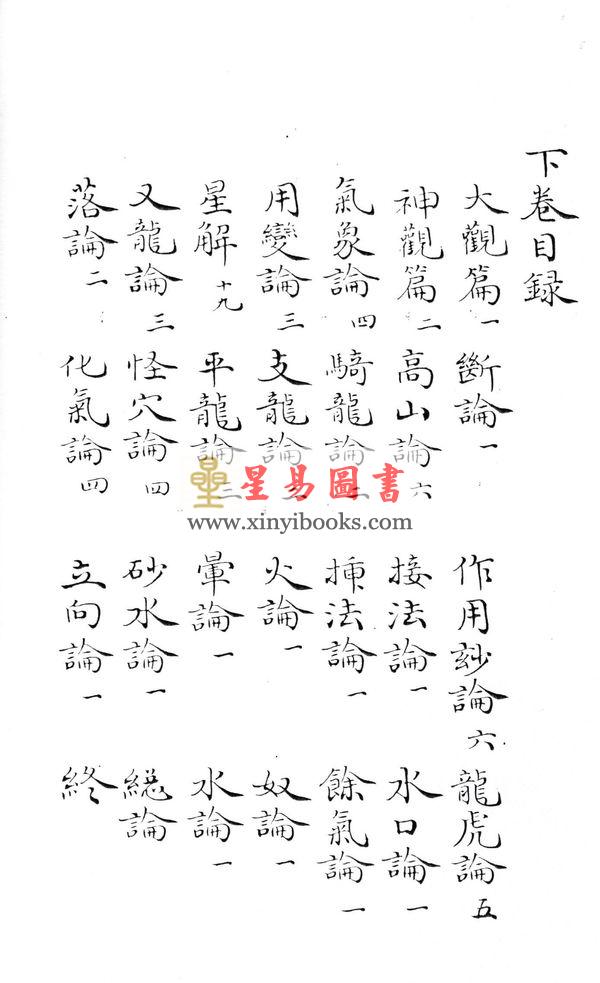 下卷目録
大觀篇一 斷論一 作用玅論六 龍虎論五
神觀篇二 高山論六 接法論一 水口論一
氣象論四 騎龍論 挿法論一 餘氣論一
用變論三 支龍論 火論一 奴論一
星解十九 平龍論三 暈論一 水論一
又龍論三 怪穴論四 砂水論一 緫論
落論二 化氣論四 立向論一 終
星易圖書
www.xinyibooks.com